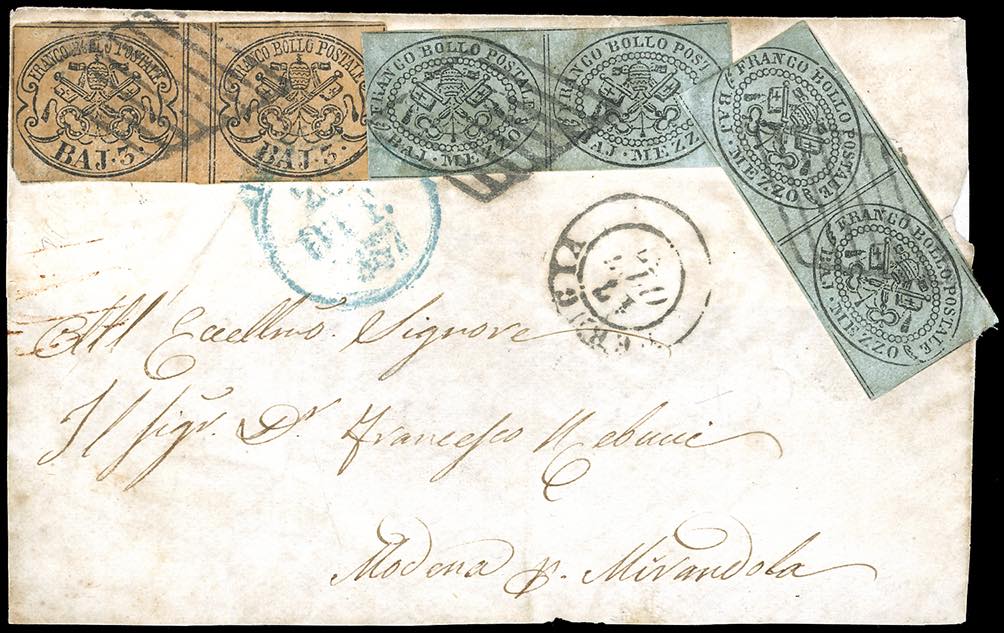 FRANCO BOLLO POSTALE
BAJ. 3.
FRANCO BOLLO POSTALE
BAJ. 3.
FRANCO BOLLO POSTALE
BAJ. MEZZO
FRANCO BOLLO POST
BAJ. MEZZ
FRANCO BOLLO POSTALE
BAJ. MEZZO
FRANCO BOLLO POSTALE
BAJ. MEZZO
All Eccellmo. Signore
Il sigr. Dr. Francesco
Modena p. Mirandola